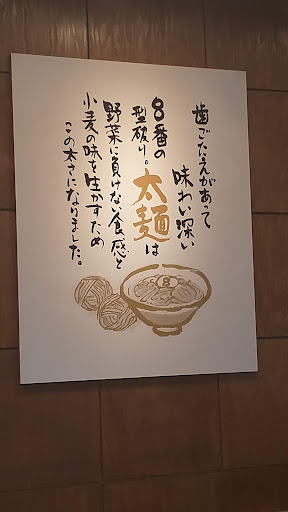 歯ごたえがあって
味わい深い
8番の
型破り。太麺は
野菜に負けない食感と
小麦の味を生かすため
この太さになりました。
8